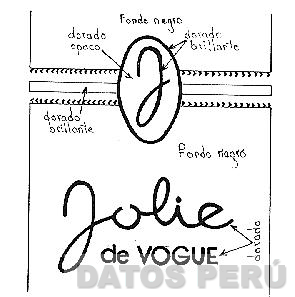 Fondo negro
dorado opaco
dorado brillante
J
dorado brillante
Fondo negro
Jolie
de VOGUE
dorado
DATOS PERÚ